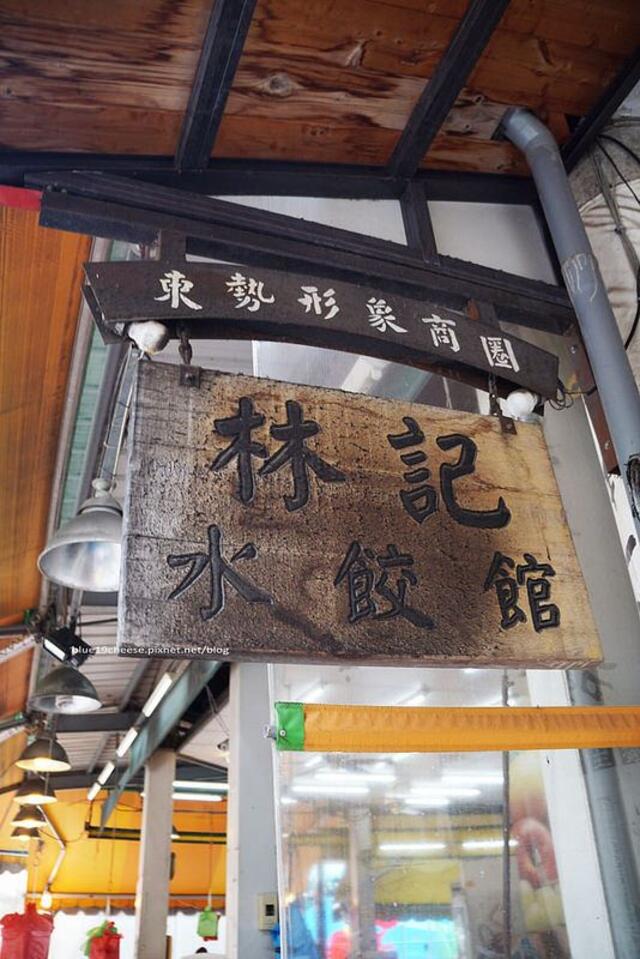 東勢形象商圈
林記
水餃館
blue19cheese.pixnet.net/blog